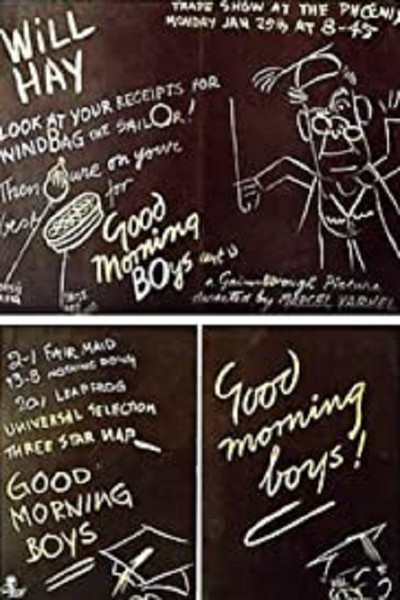 TRADE SHOW AT THE PHOENIX
MONDAY JAN 25th AT 8-45
WILL
HAY
LOOK AT YOUR RECEIPTS FOR
WINDBAG THE SAILOR!
Then on your
best for
Good
Morning
BOYS
a Gainsborough Picture
directed by MARCEL VARNEL
2-1 FAIR MAID
13-8 NOTHING DOWN
20/1 LEAPFROG
UNIVERSAL SELECTION
THREE STAR NAP
GOOD
MORNING
BOYS
Good
morning
boys!